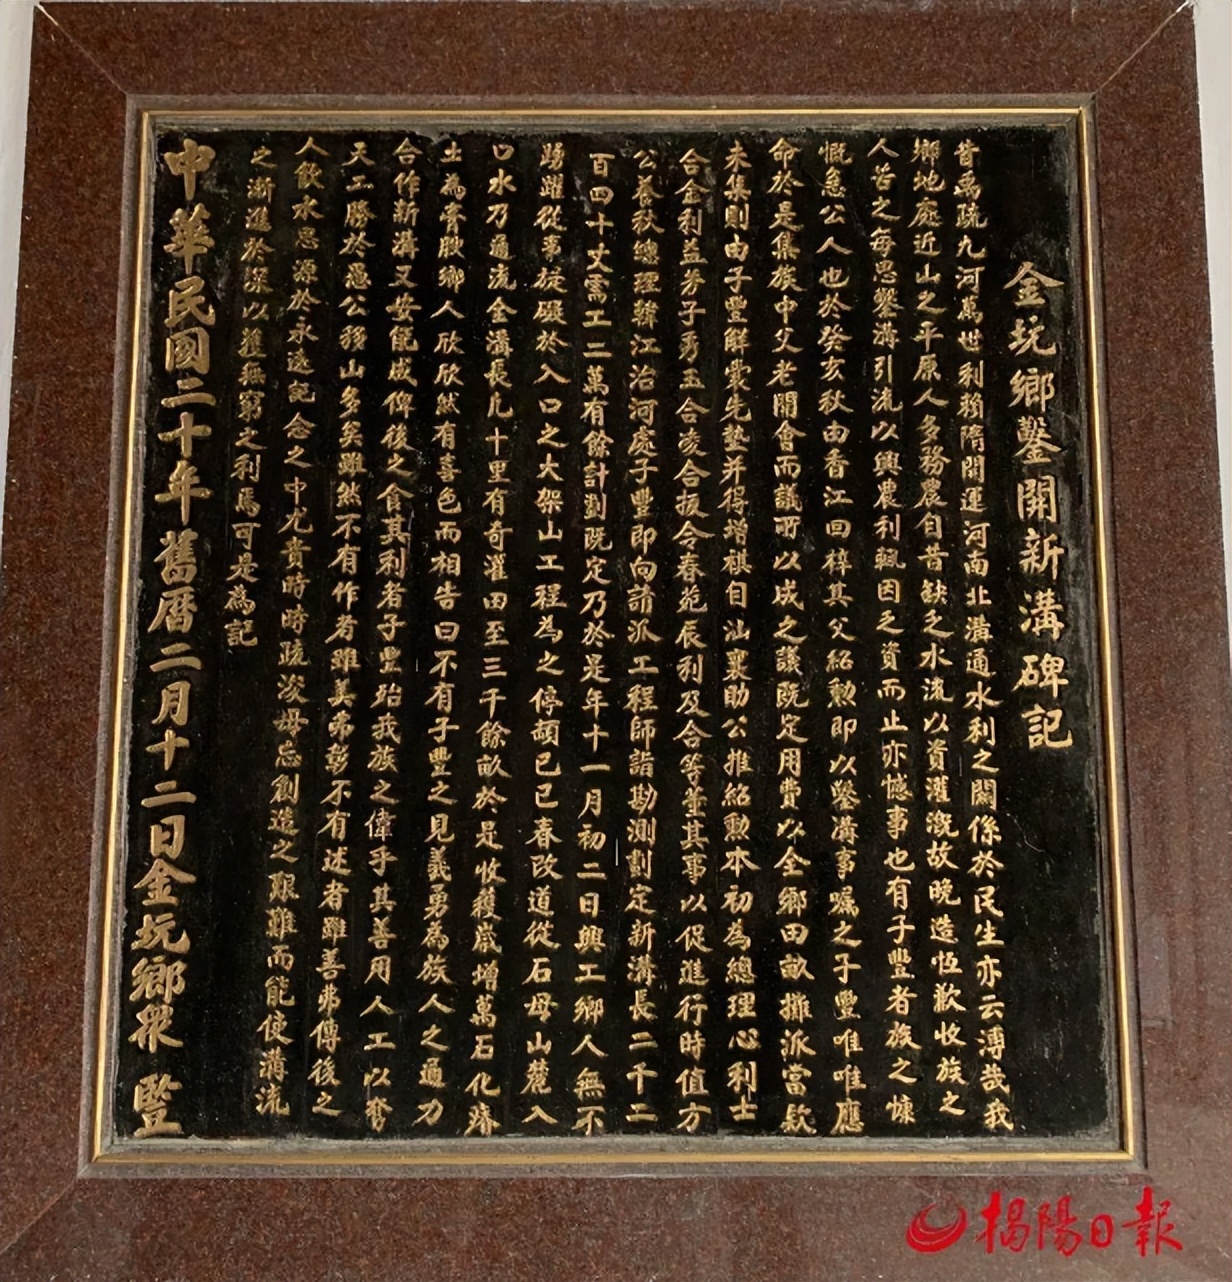 金坑鄉鑿開新溝碑記
昔禹疏九河萬世利賴隋開運河南北溝通水利之關係於民生亦云溥哉我
鄉地處近山之平原人多務農自昔缺乏水流以資灌溉故晚造恆歉收族之
人苦之每思鑿溝引流以興農利輒因乏資而止亦憾事也有子豐者族之慷
慨急公人也於癸亥秋由香江回梓其父紹勲即以鑿溝事囑之子豐唯唯應
命於是集族中父老開會而議所以成之議既定用費以全鄉田畝攤派當款
未集則由子豐解囊先墊并得增祺自汕襄助公推紹勲本初為總理心利士
合金利益芽子秀玉合炎合振今春苑辰利及合等董其事以促進行時值方
公養秋總理韓江治河處子豐即向請派工程師詣勘測劃定新溝長二千二
百四十丈需工二萬有餘計劃既定乃於是年十一月初二日興工鄉人無不
踴躍從事旋礙於入口之大架山工程為之停頓己巳春改道從石母山麓入
口水乃通流全溝長凡十里有奇灌田至三千餘畝於是收穫歲增萬石化瘠
土為膏腴鄉人欣欣然有喜色而相告曰不有子豐之見義勇為族人之通力
合作新溝又安能成俾後之食其利者子豐殆我族之偉乎其善用人工以奪
天工勝於愚公移山多矣雖然不有作者雖美弗彰不有述者雖善弗傳後之
人飲水思源於永遠紀念之中尤貴時時疏浚毋忘創造之艱難而能使溝流
之漸進於深以獲無窮之利焉可是為記
中華民國二十年舊曆二月十二日金坑鄉眾 豎
揭陽日報